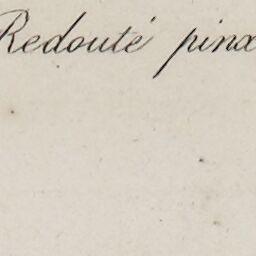 Redouté pinx